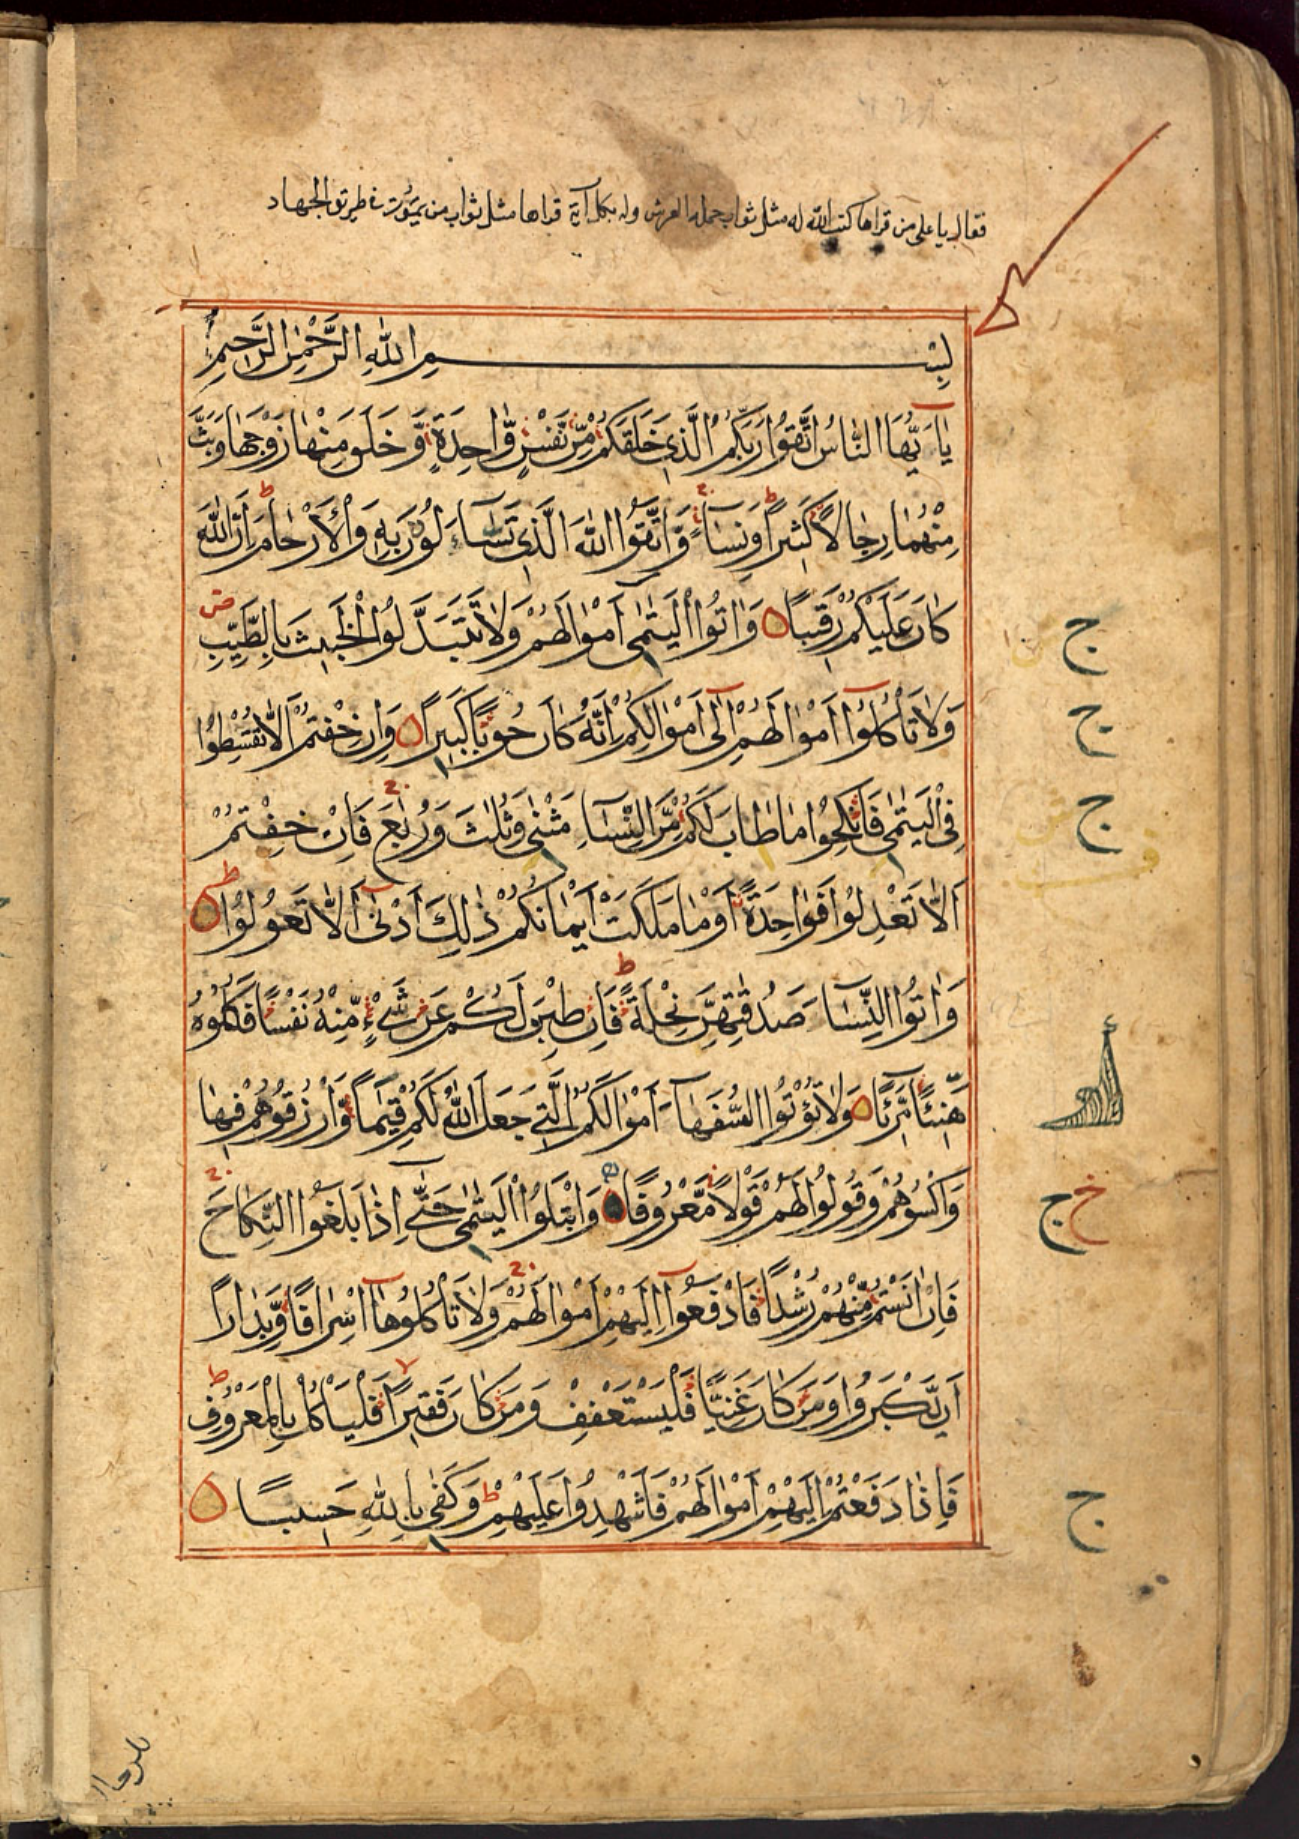 فقال يا على من قراها كتب الله له مثل ثواب حملة العرش وله بكل آية قراها مثل ثواب من يموت فى طريق الجهاد
بِسْمِ اللّٰهِ الرَّحْمٰنِ الرَّحِيمِ
يٰاَيُّهَا النَّاسُ اتَّقُوْا رَبَّكُمُ الَّذِىْ خَلَقَكُمْ مِّنْ نَّفْسٍ وّٰاحِدَةٍ وَّخَلَقَ مِنْهَا زَوْجَهَا وَبَثَّ
مِنْهُمٰا رِجٰالًا كَثِيْرًا وَّنِسٰآءً وَّاتَّقُوا اللّٰهَ الَّذِىْ تَسٰٓاءَلُوْنَ بِهٖ وَالْاَرْحٰامَ اِنَّ اللّٰهَ
كٰانَ عَلَيْكُمْ رَقِيْبًا وَاٰتُوا الْيَتٰمٰى اَمْوٰالَهُمْ وَلٰا تَتَبَدَّلُوا الْخَبِيْثَ بِالطَّيِّبِ
ض
ج
وَلٰا تَأْكُلُوْٓا اَمْوٰالَهُمْ اِلٰٓى اَمْوٰالِكُمْ اِنَّهٗ كٰانَ حُوْبًا كَبِيْرًا وَاِنْ خِفْتُمْ اَلّٰا تُقْسِطُوْا
ج
فِى الْيَتٰمٰى فَانْكِحُوْا مٰا طٰابَ لَكُمْ مِّنَ النِّسٰٓاءِ مَثْنٰى وَثُلٰثَ وَرُبٰعَ فَاِنْ خِفْتُمْ
ج
اَلّٰا تَعْدِلُوْا فَوٰاحِدَةً اَوْ مٰا مَلَكَتْ اَيْمٰانُكُمْ ذٰلِكَ اَدْنٰٓى اَلّٰا تَعُوْلُوْا
ط
وَاٰتُوا النِّسٰٓاءَ صَدُقٰتِهِنَّ نِحْلَةً فَاِنْ طِبْنَ لَكُمْ عَنْ شَىْءٍ مِّنْهُ نَفْسًا فَكُلُوْهُ
ط
هَنِيْٓئًا مَّرِيْٓئًا وَلٰا تُؤْتُوا السُّفَهٰٓاءَ اَمْوٰالَكُمُ الَّتِىْ جَعَلَ اللّٰهُ لَكُمْ قِيٰمًا وَّارْزُقُوْهُمْ فِيْهٰا
وَاكْسُوْهُمْ وَقُوْلُوْا لَهُمْ قَوْلًا مَّعْرُوْفًا وَابْتَلُوا الْيَتٰمٰى حَتّٰٓى اِذٰا بَلَغُوا النِّكٰاحَ
خ ج
فَاِنْ اٰنَسْتُمْ مِّنْهُمْ رُشْدًا فَادْفَعُوْٓا اِلَيْهِمْ اَمْوٰالَهُمْ وَلٰا تَأْكُلُوْهٰٓا اِسْرٰافًا وَّبِدٰارًا
اَنْ يَّكْبَرُوْا وَمَنْ كٰانَ غَنِيًّا فَلْيَسْتَعْفِفْ وَمَنْ كٰانَ فَقِيْرًا فَلْيَأْكُلْ بِالْمَعْرُوْفِ
ط
فَاِذٰا دَفَعْتُمْ اِلَيْهِمْ اَمْوٰالَهُمْ فَاَشْهِدُوْا عَلَيْهِمْ ط وَكَفٰى بِاللّٰهِ حَسِيْبًا
ج